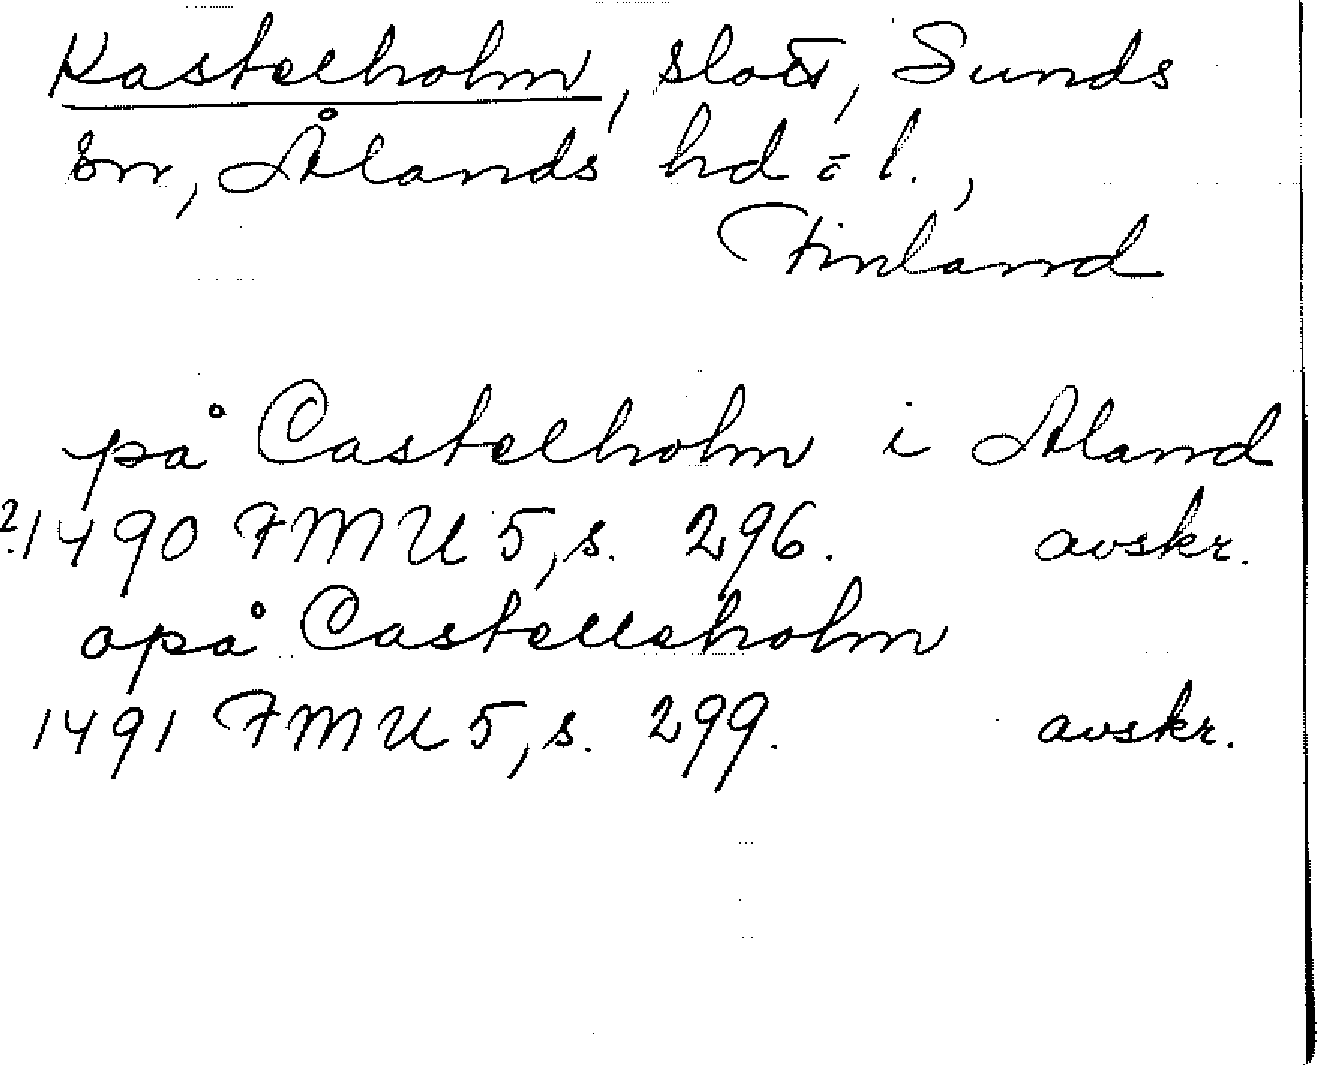 Kastelholm, slott, Sunds
sn, Ålands hd = l.,
Finland
på Castelholm i Aland
?1490 FMU 5, s. 296. avskr.
opå Castelleholm
1491 FMU 5, s. 299. avskr.